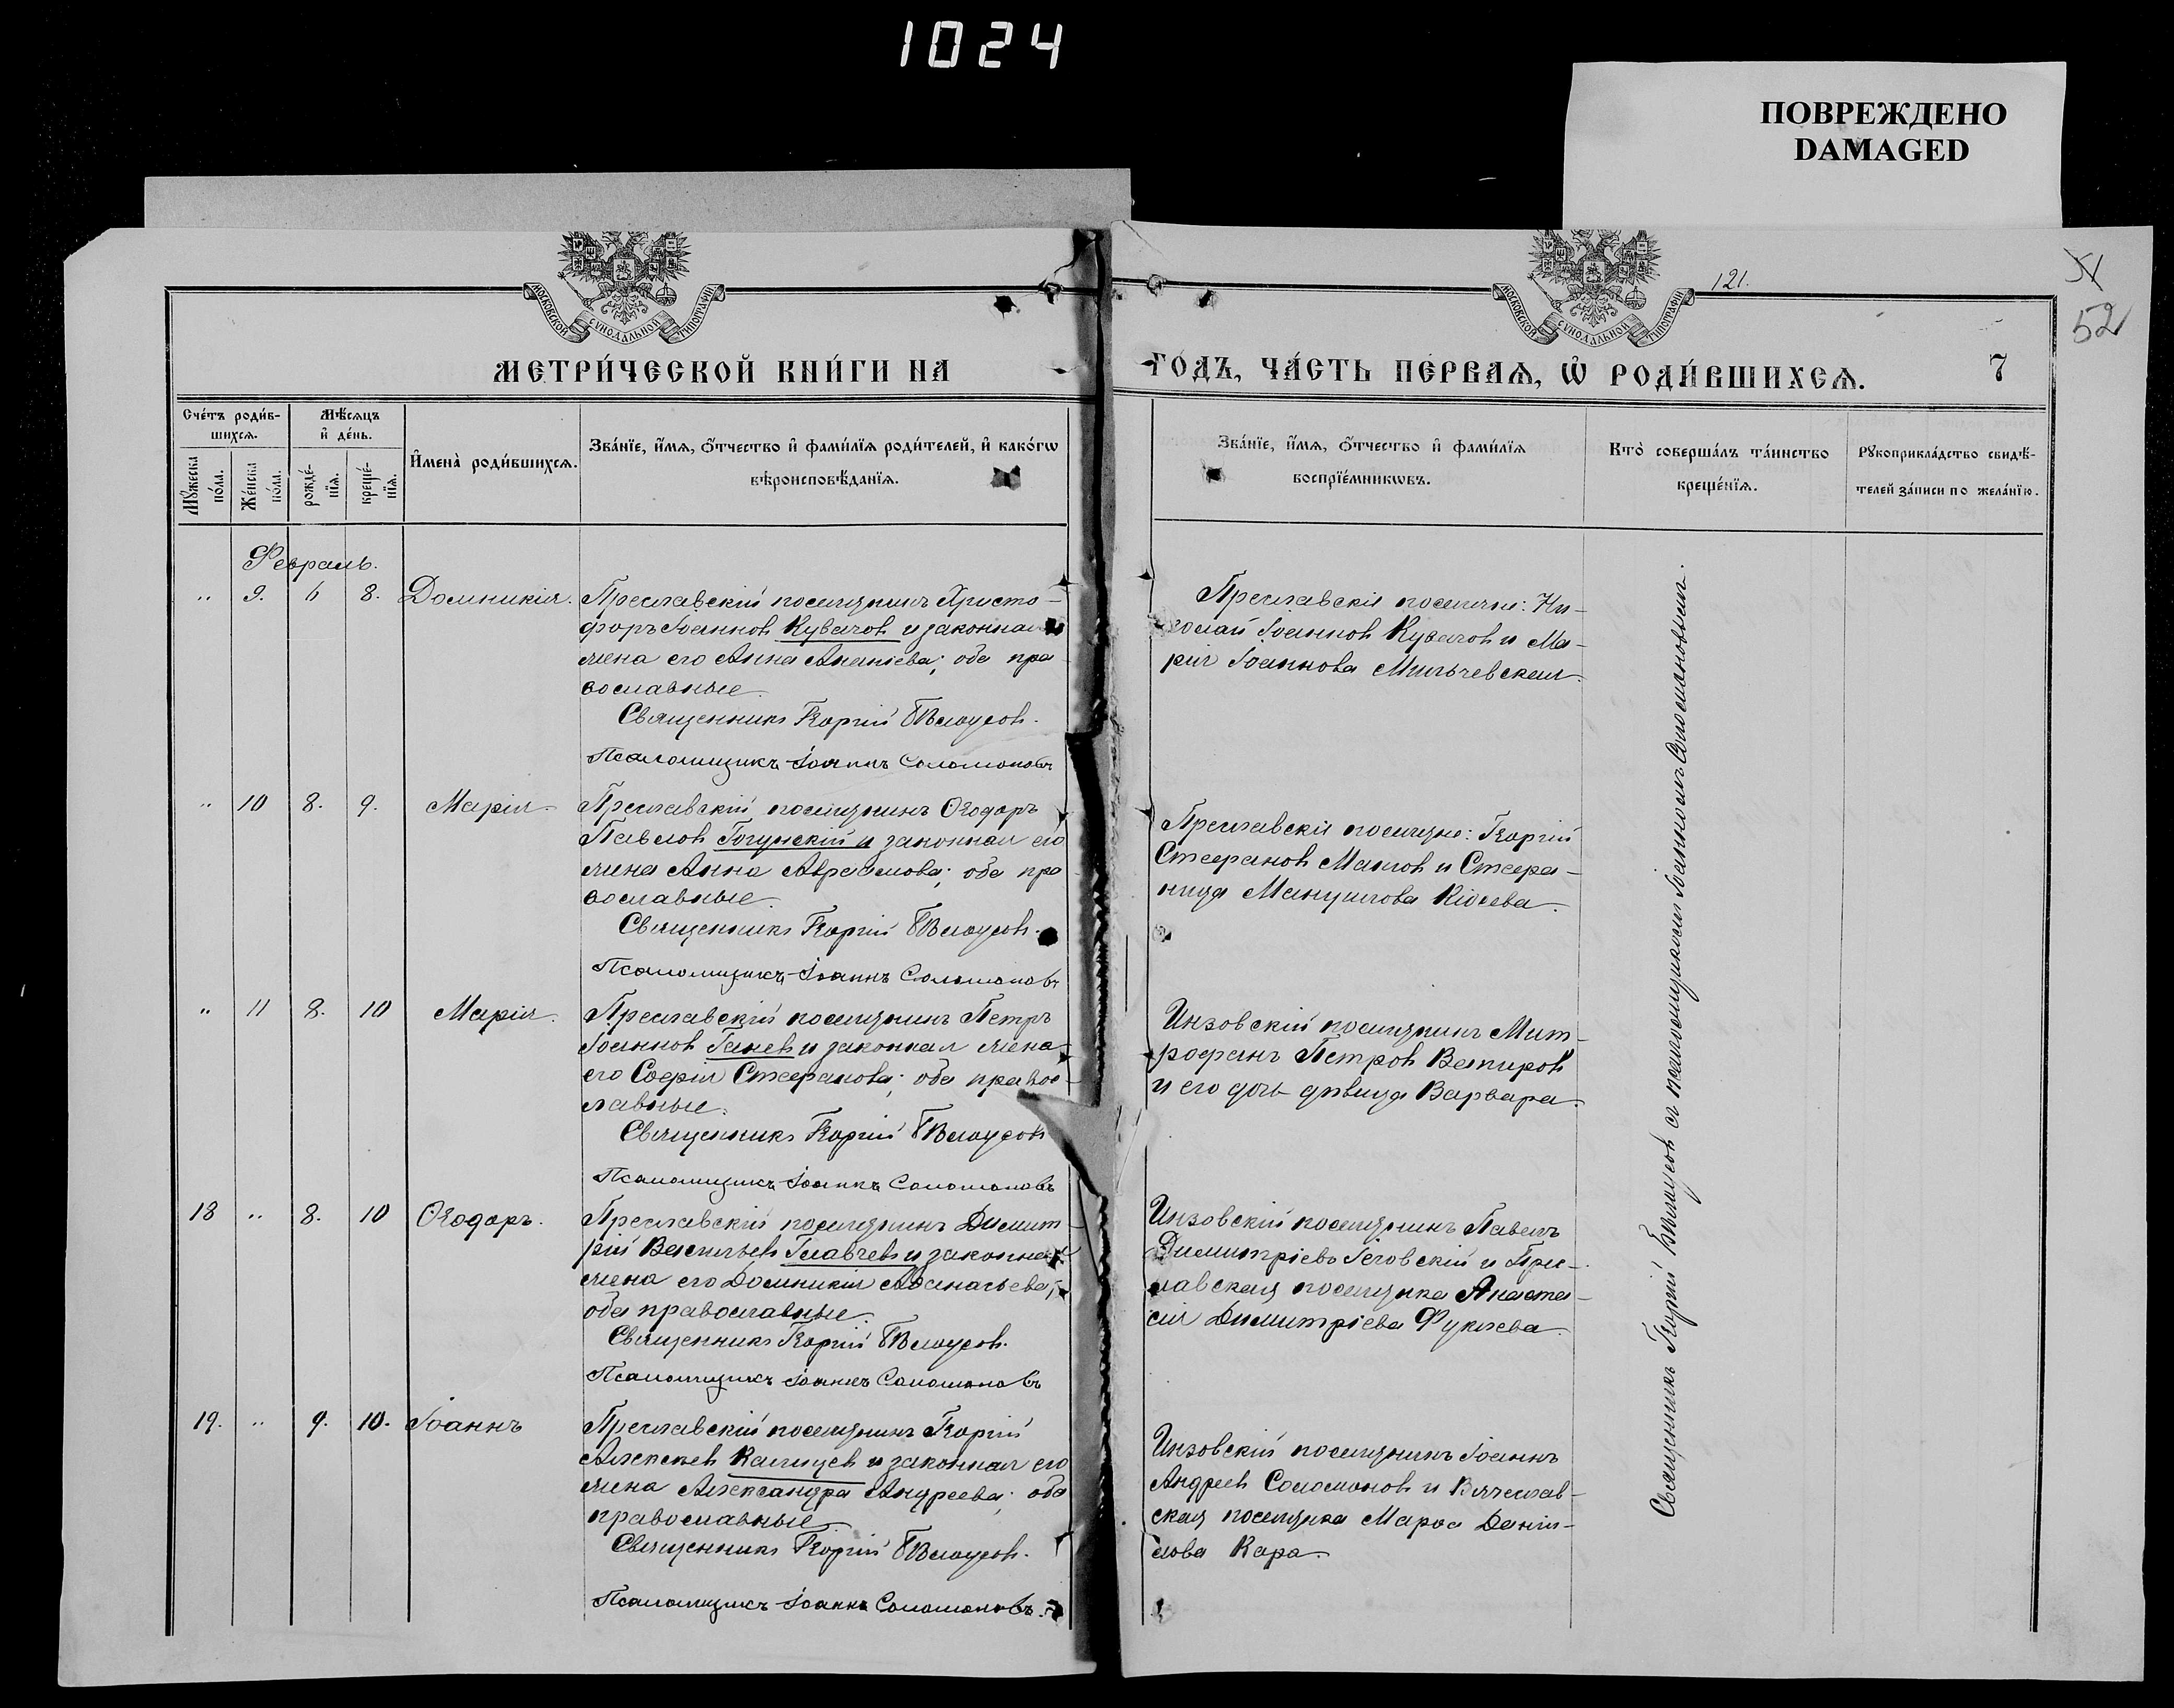 1024
ПОВРЕЖДЕНО
DAMAGED
МОСКОВСКОЙ СѴНОДАЛЬНОЙ ТИПОГРАФІИ
МОСКОВСКОЙ СѴНОДАЛЬНОЙ ТИПОГРАФІИ
121.
51
52
МЕТРИ́ЧЕСКОЙ КНИ́ГИ НА
ГО́ДЪ, ЧА́СТЬ ПЕ́РВАѦ, Ѽ РОДИ́ВШИХСѦ.
7
Сче́тъ роди́в-
шихсѧ.
Мꙋ́жеска
по́ла.
Же́нска
по́ла.
Мѣ́сѧцъ
и҆ де́нь.
рожде́-
нїѧ.
креще́-
нїѧ.
И҆мена̀ роди́вшихсѧ.
Зва́нїе, и҆́мѧ, ѻ҆́тчество и҆ фами́лїѧ роди́телей, и҆ како́гѡ
вѣроисповѣ́данїѧ.
Зва́нїе, и҆́мѧ, ѻ҆́тчество и҆ фами́лїѧ
воспрїе́мникѡвъ.
Кто̀ соверша́лъ та́инство
креще́нїѧ.
Рꙋкоприкла́дство свидѣ́-
телей за́писи по жела́нїю.
Февраль.
„ 9. 6 8. Домникія.
Преславскій поселянинъ Христо-
форъ Іоаннов Кувачов и законная
жена его Анна Ананіева; оба пра-
вославные.
Священникъ Георгій Бѣлоусов.
Псаломщикъ Іоаннъ Соломоновъ
Преславскіе поселяне: Ни-
колай Іоаннов Кувачов и Ма-
рія Іоаннова Мильчевская.
„ 10 8. 9. Марія.
Преславскій поселянинъ Ѳеодоръ
Павлов Гогунскій и законная его
жена Анна Авраамова; оба пра-
вославные.
Священникъ Георгій Бѣлоусов.
Псаломщикъ Іоаннъ Соломоновъ
Преславскіе поселяне: Георгій
Стефанов Малов и Стефа-
нида Мануилова Кіосева.
„ 11 8. 10 Марія.
Преславскій поселянинъ Петръ
Іоаннов Ганев и законная жена
его Софія Стефанова; оба правос-
лавные.
Священникъ Георгій Бѣлоусов
Псаломщикъ Іоаннъ Соломоновъ
Инзовскій поселянинъ Мит-
рофанъ Петров Вапиров
и его дочь дѣвица Варвара.
18 „ 8. 10 Ѳеодоръ.
Преславскій поселянинъ Димит-
рій Васильев Главчев и законная
жена его Домникія Аѳанасьева;
оба православные.
Священникъ Георгій Бѣлоусов.
Псаломщикъ Іоаннъ Соломоновъ
Инзовскій поселянинъ Павелъ
Димитріевъ Геговскій и Прес-
лавская поселянка Анаста-
сія Димитріева Фукчева.
19. „ 9. 10. Іоаннъ
Преславскій поселянинъ Георгій
Алексѣев Калищев и законная его
жена Александра Андреева; оба
православные.
Священникъ Георгій Бѣлоусов.
Псаломщикъ Іоаннъ Соломоновъ.
Инзовскій поселянинъ Іоаннъ
Андреев Соломонов и Вячеслав-
ская поселянка Марѳа Даніи-
лова Кара.
Священникъ Георгій Бѣлоусов съ псаломщикомъ Іоанномъ Соломоновымъ.